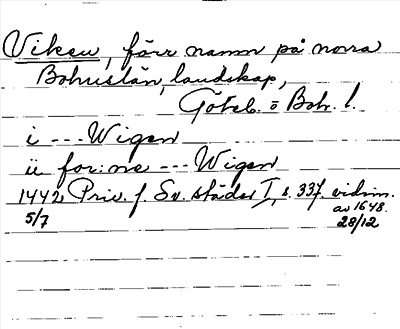 Viken, förr namn på norra
Bohuslän, landskap,
Göteb. o Boh. l.
i --- Wigen
ii for:ne --- Wigen
1442 Priv. f. Sv. städer I, s. 337. vidim.
5/7 av 1648.
28/12